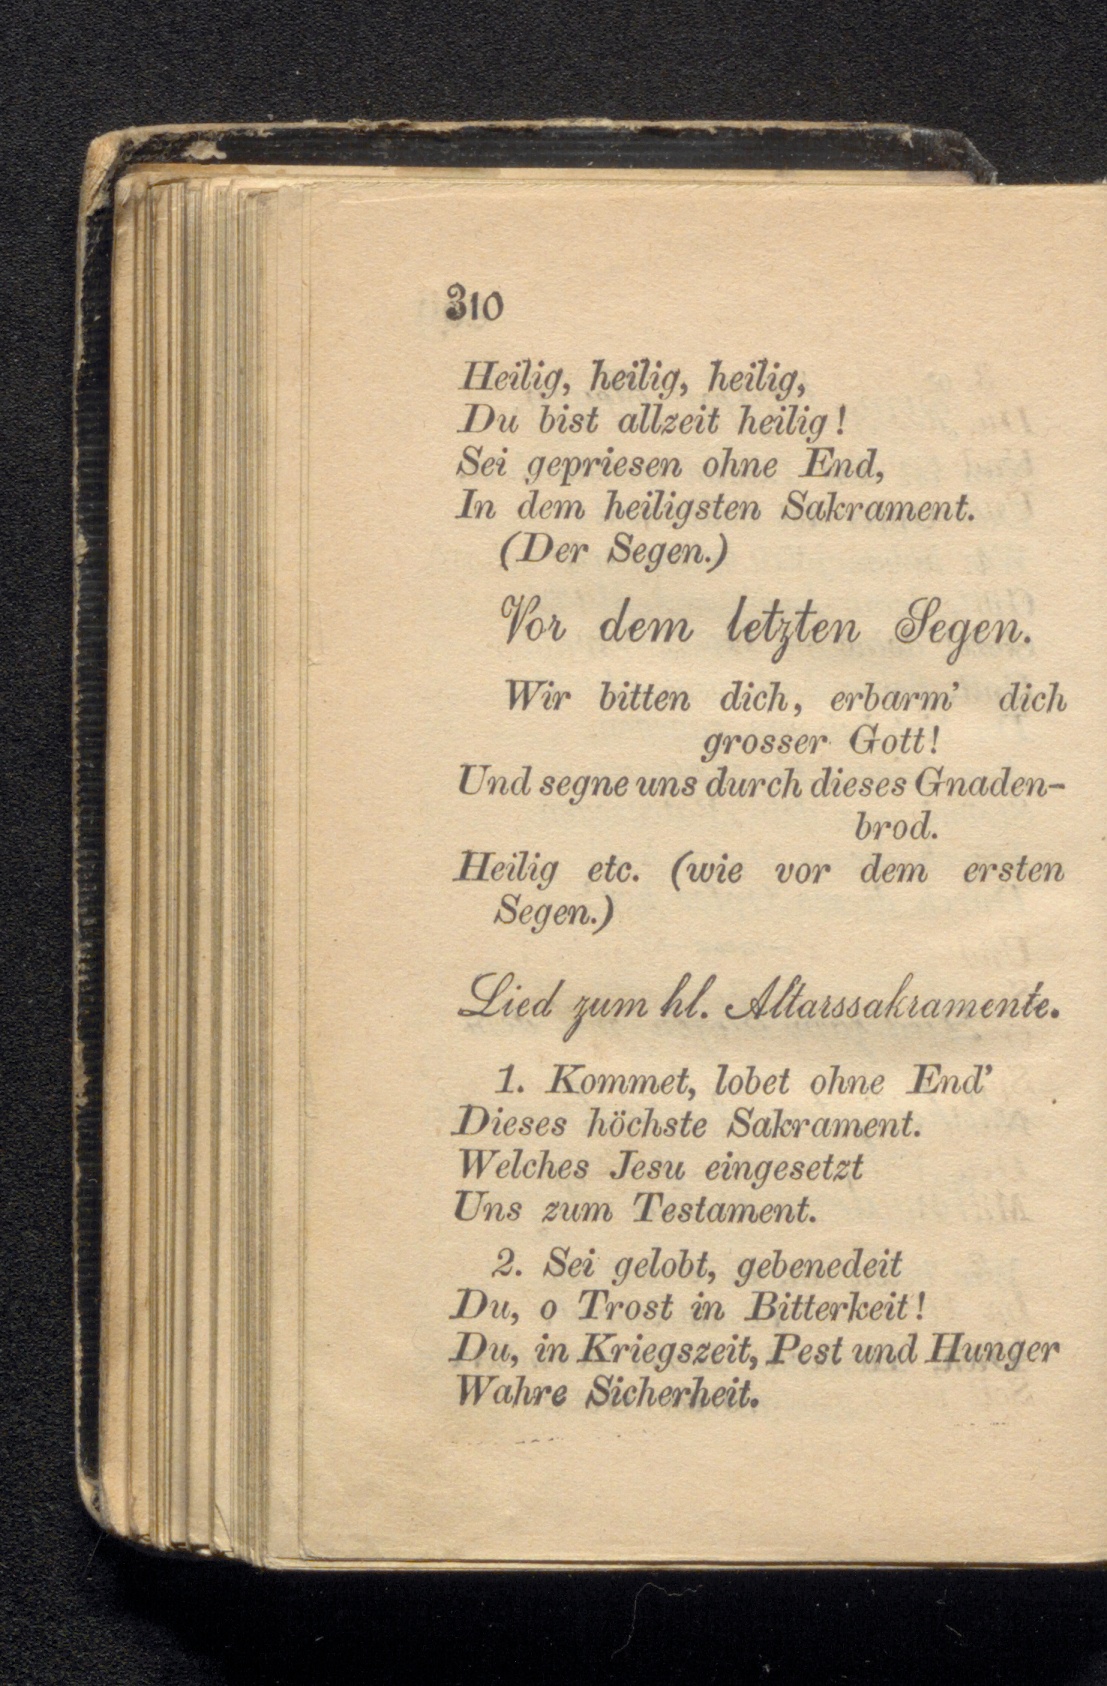 310
Heilig, heilig, heilig,
Du bist allzeit heilig!
Sei gepriesen ohne End,
In dem heiligsten Sakrament.
(Der Segen.)
Vor dem letzten Segen.
Wir bitten dich, erbarm' dich
grosser Gott!
Und segne uns durch dieses Gnaden-
brod.
Heilig etc. (wie vor dem ersten
Segen.)
Lied zum hl. Altarssakramente.
1. Kommet, lobet ohne End'
Dieses höchste Sakrament.
Welches Jesu eingesetzt
Uns zum Testament.
2. Sei gelobt, gebenedeit
Du, o Trost in Bitterkeit!
Du, in Kriegszeit, Pest und Hunger
Wahre Sicherheit.